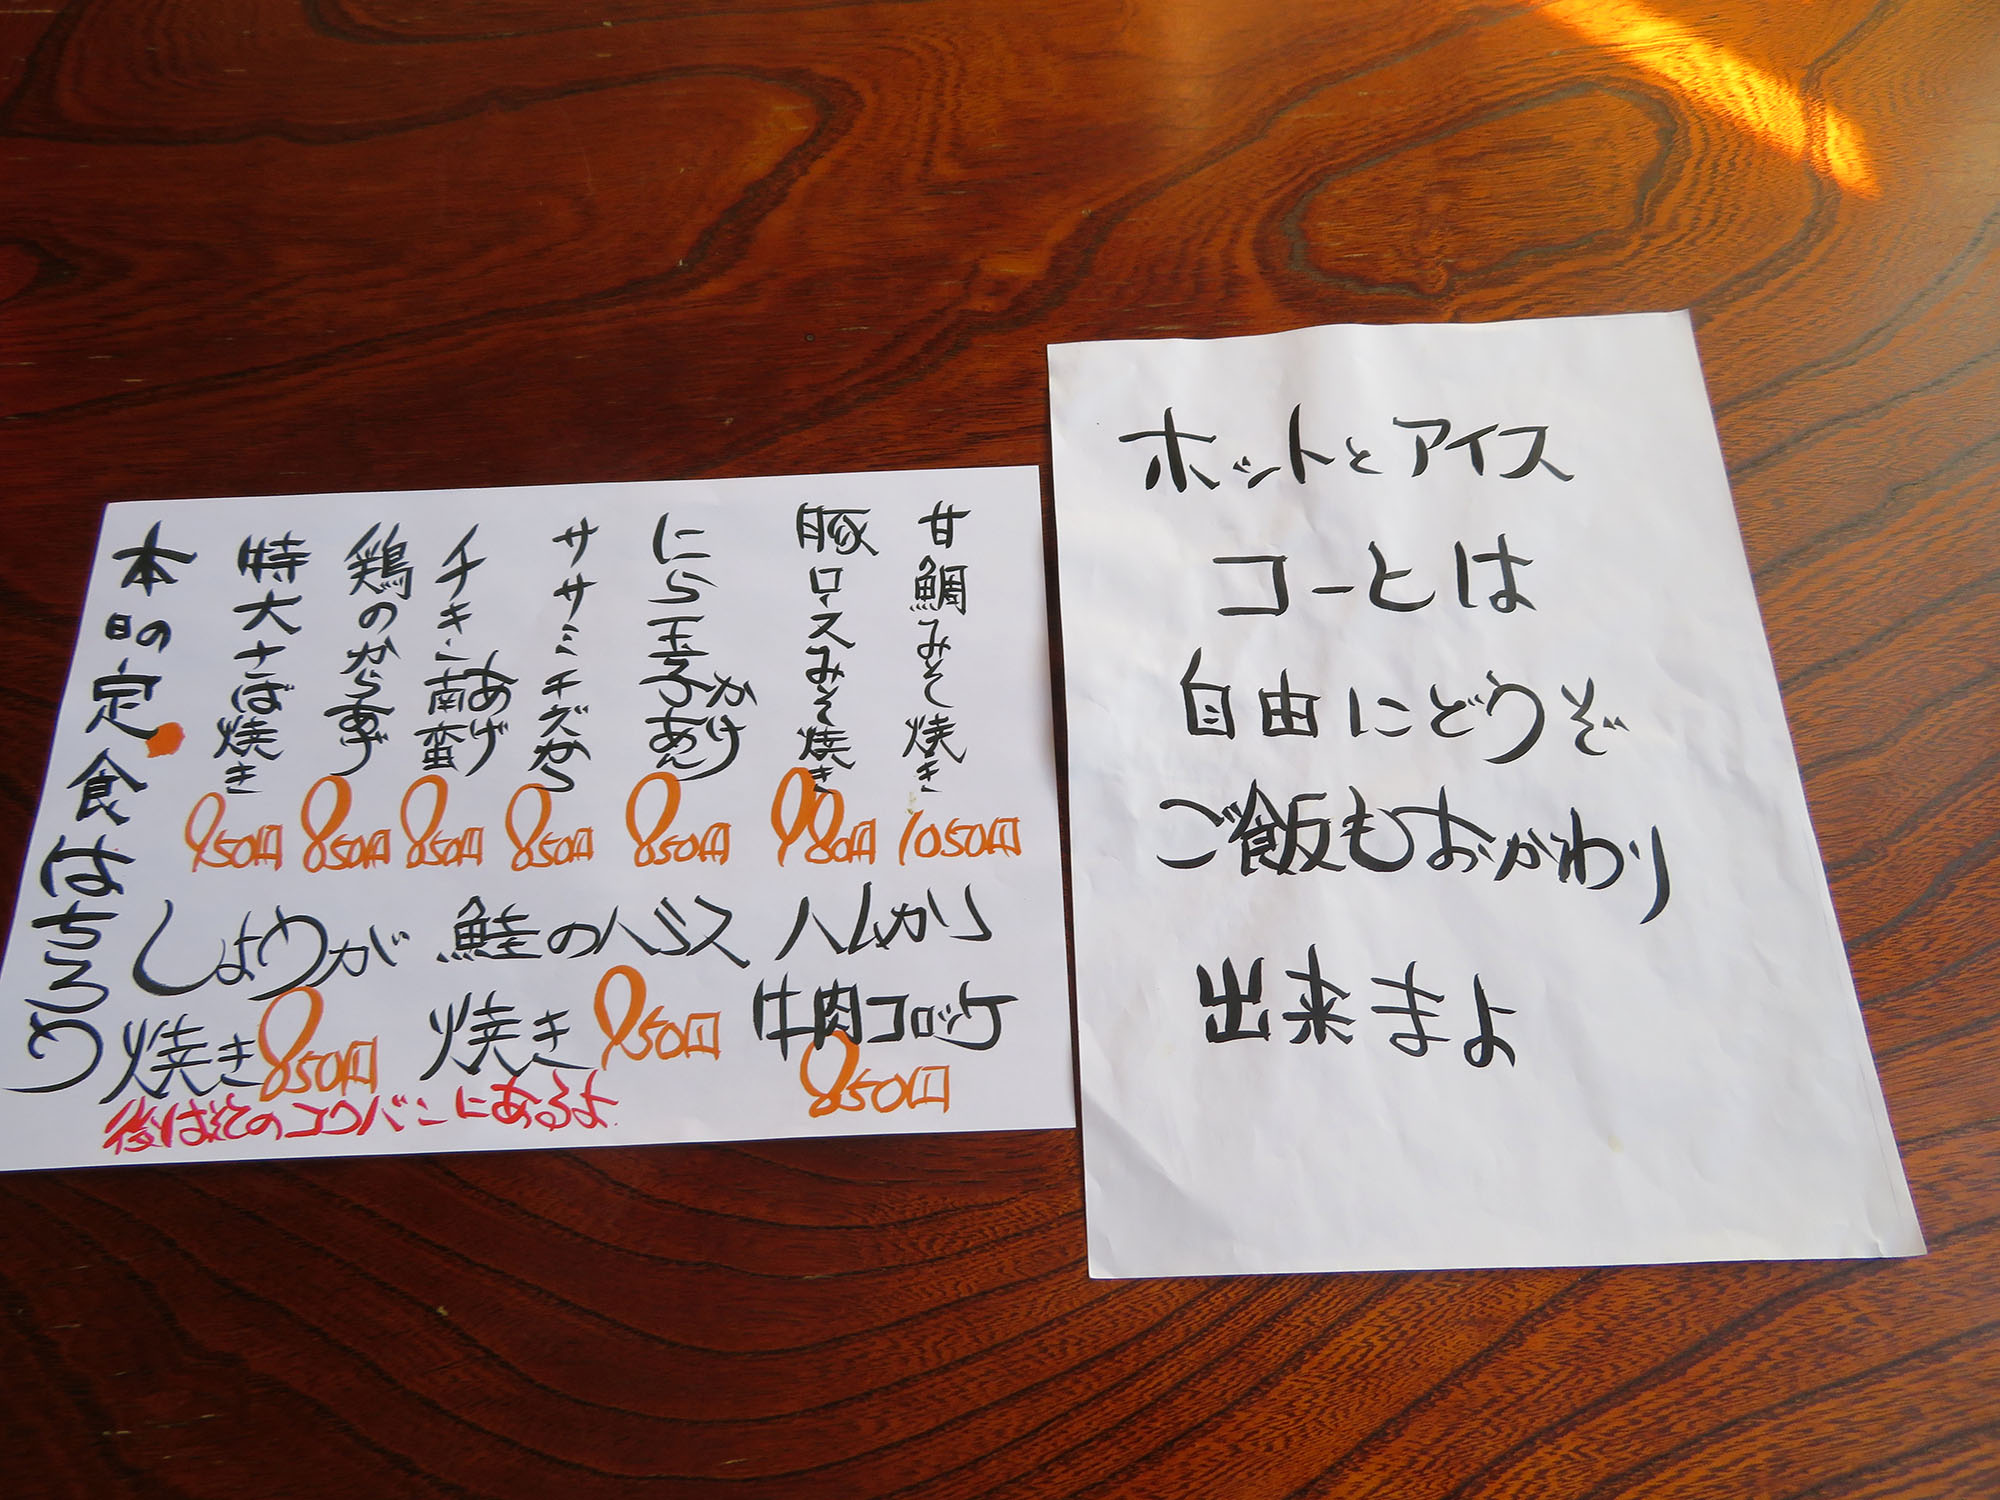 本日の定食はちろり
甘鯛みそ焼き
1050円
豚ロースみそ焼き
980円
にら玉子あんかけ
850円
ササミチーズから
850円
チキン南蛮あげ
850円
鶏のからあげ
850円
特大さば焼き
950円
しょうが焼き
850円
鮭のハラス焼き
950円
ハムかり
牛肉コロッケ
850円
にあるよ
ホットとアイス
コーとは
自由にどうぞ
ご飯もおかわり
出来まよ